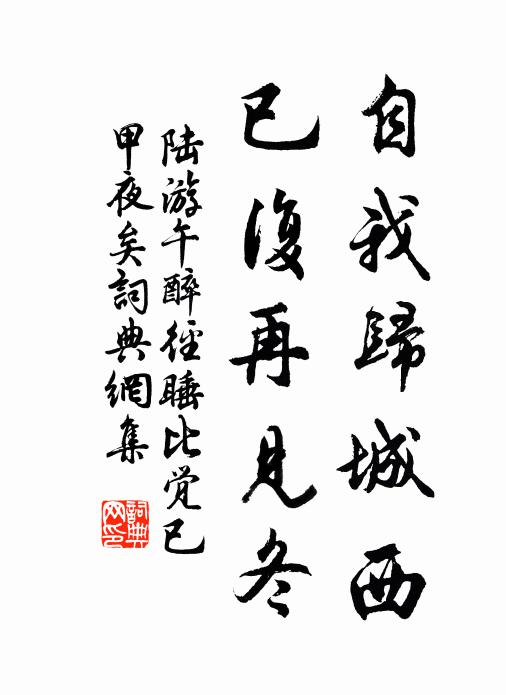 自我歸城西
已復再見冬
陸游午醉徑睡比觉已
甲夜矣詞典網集
詞典
网印